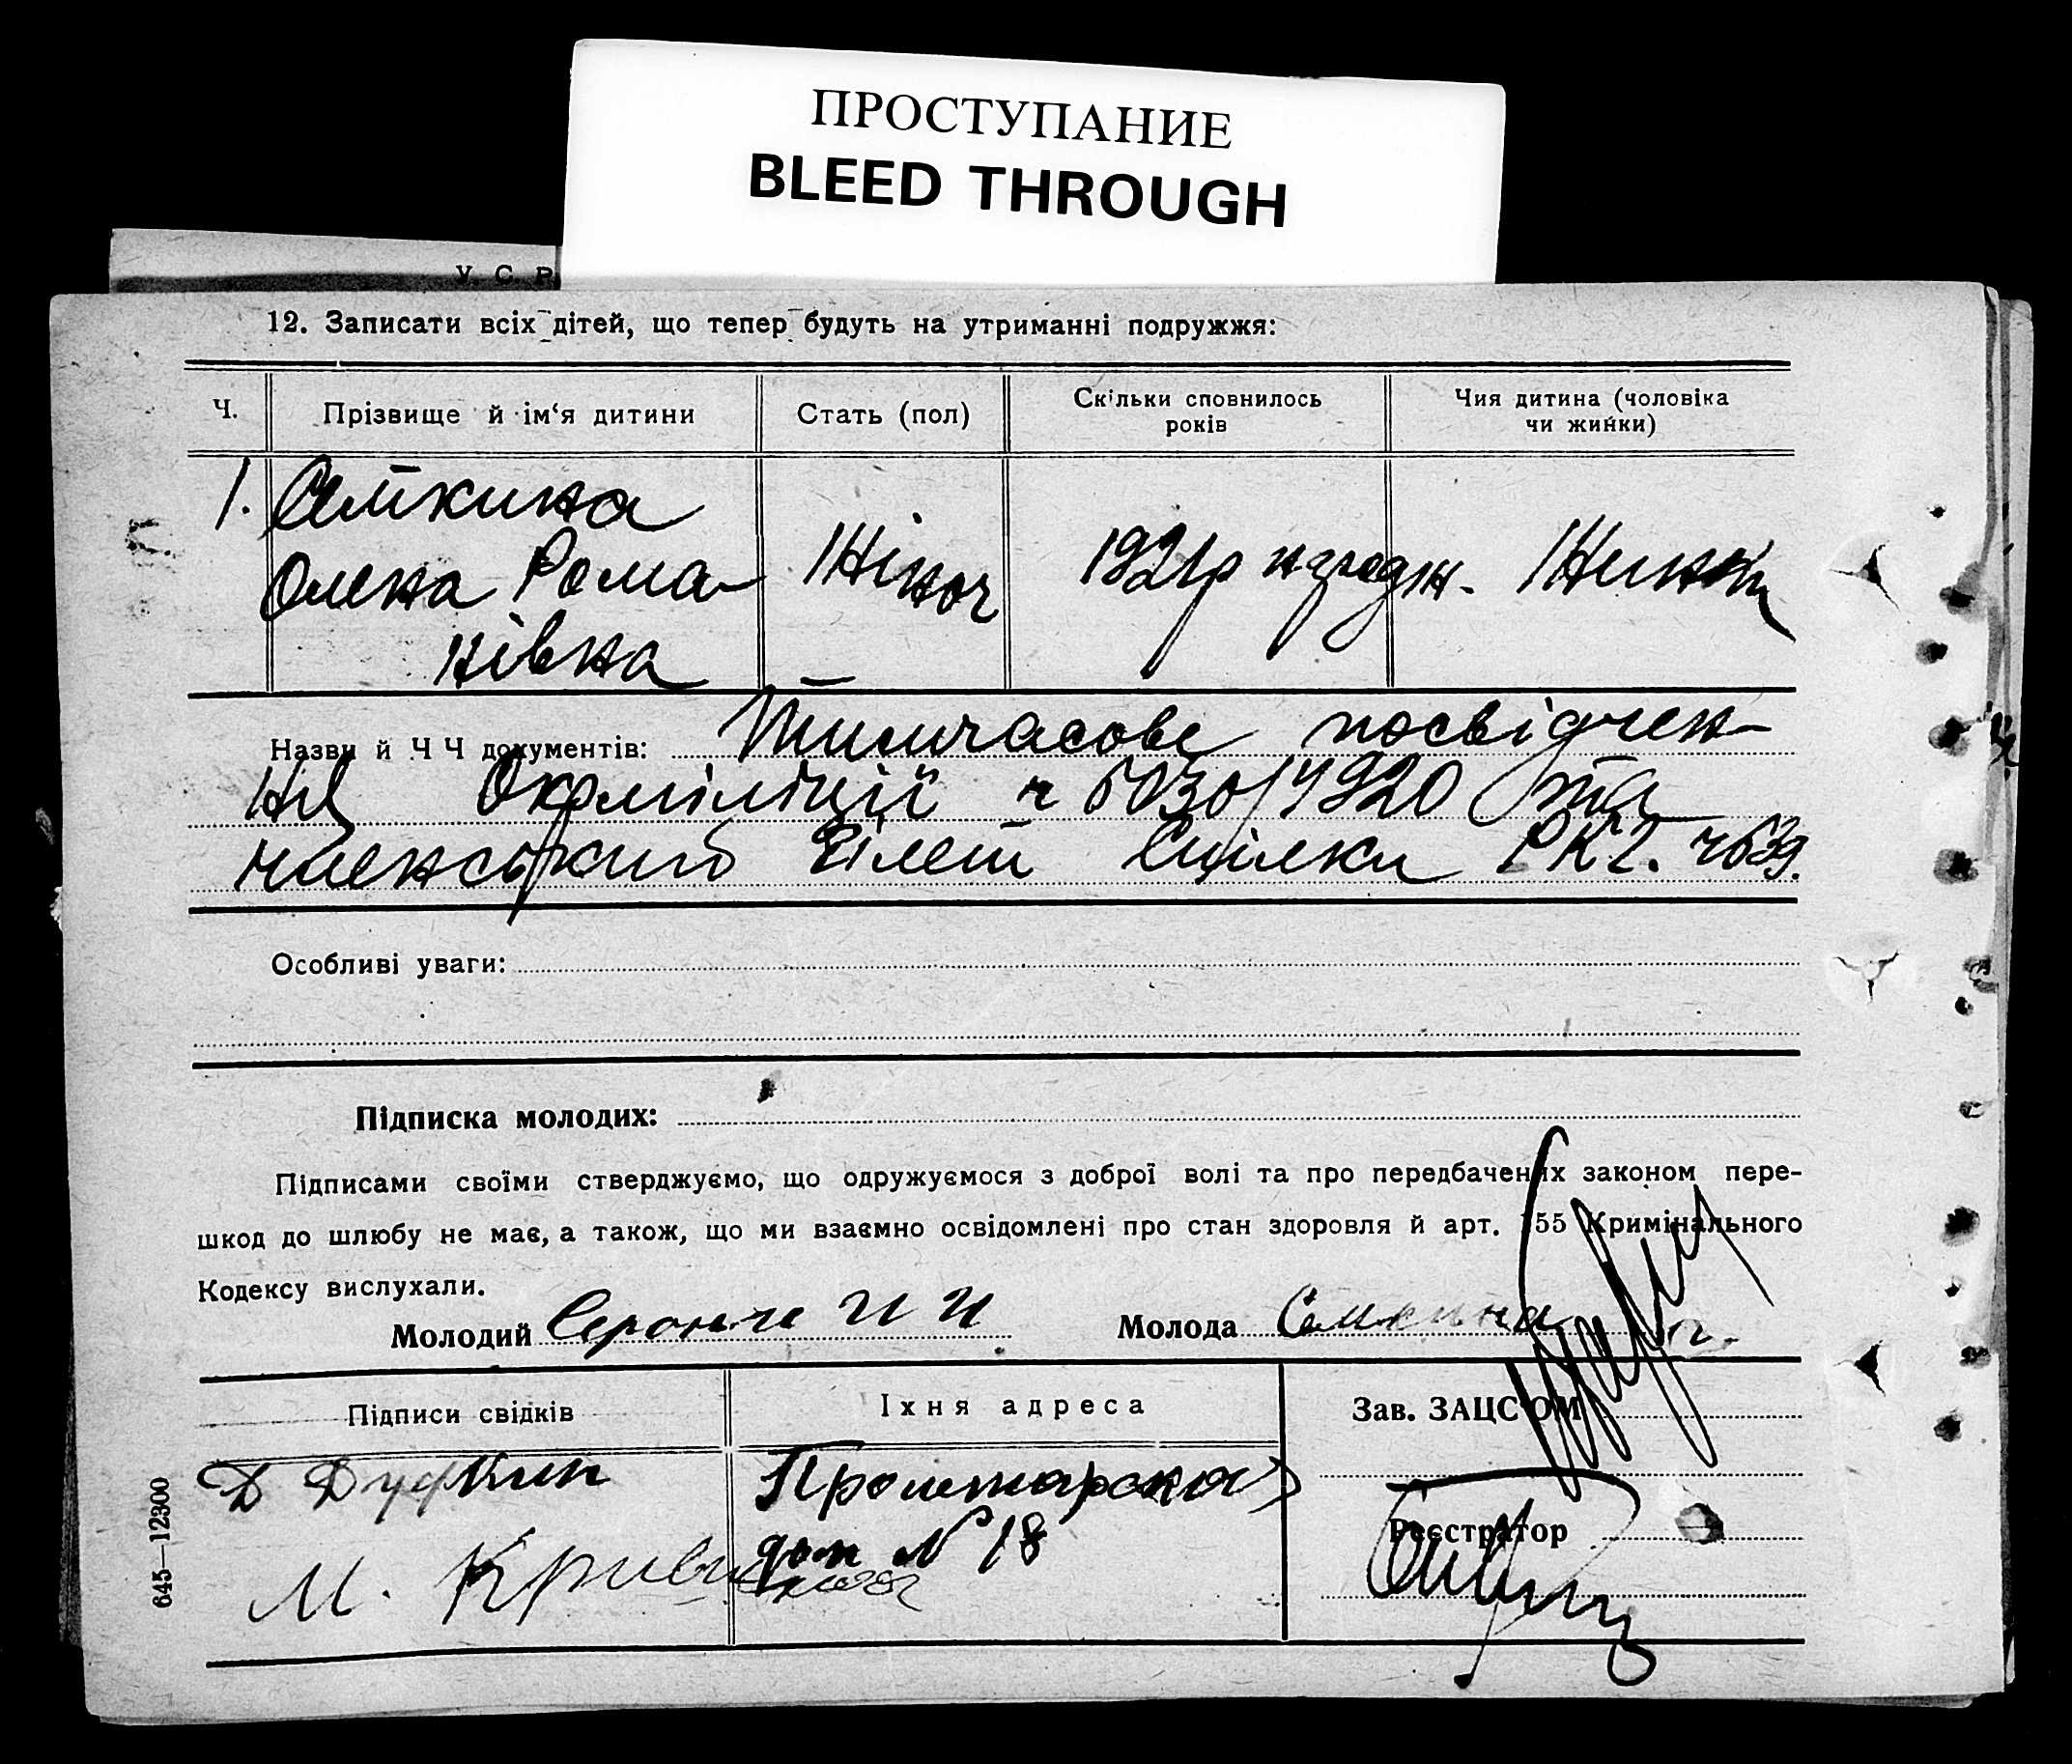 ПРОСТУПАНИЕ
BLEED THROUGH
У. С. Р.
12. Записати всіх дітей, що тепер будуть на утриманні подружжя:
Ч.
Прізвище й ім‘я дитини
Стать (пол)
Скільки сповнилось
років
Чия дитина (чоловіка
чи жинки)
1.
Олена Рома-
нівна
Жіноч
1921р народж.
Жинки
Назви й Ч Ч документів: Тимчасове посвідчен-
ня Окрміліції ч 5030/4920 та
членський білет Спілки
Особливі уваги:
Підписка молодих:
Підписами своїми стверджуємо, що одружуємося з доброї волі та про передбачених законом пере-
шкод до шлюбу не має, а також, що ми взаємно освідомлені про стан здоровля й арт. 155 Кримінального
Кодексу вислухали.
Молодий
Молода
Підписи свідків
Їхня адреса
Зав. ЗАЦС‘ОМ
Д
Пролетарская
дом N 18
М.
Реєстратор
645—12300